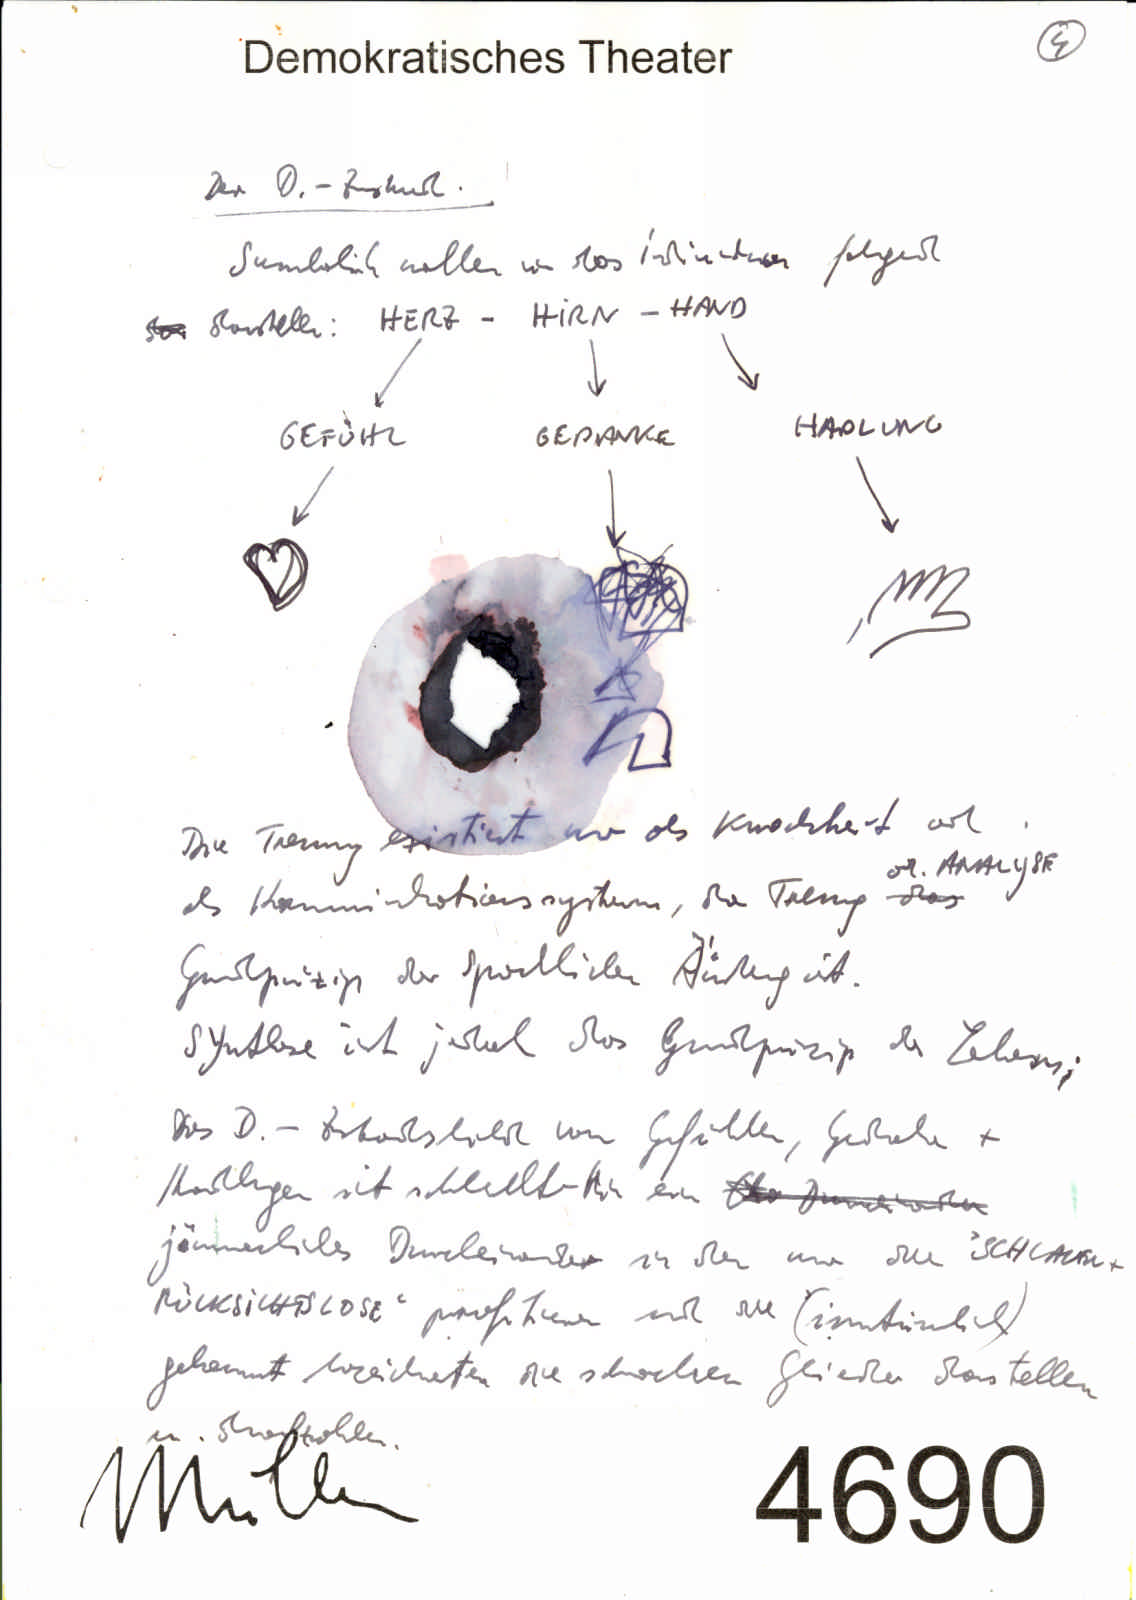 Demokratisches Theater
4
Der D.-Zustand.
Symbolisch wollen wir das Individuum folgend
darstellen: HERZ - HIRN - HAND
GEFÜHL GEDANKE HADLUNG
Die Trennung existiert nur als Krankheit und
als Kommunikationssystem, da Trennung od. ANALYSE
Grundprinzip der sprachlichen Äußerung ist.
Synthese ist jedoch das Grundprinzip des Lebens;
Das D.- von Gefühlen, Gedanken +
Handlungen ist schlechthin ein
jämmerliches Durcheinander in dem nur die "SCHLAUEN +
RÜCKSICHTSLOSE" profitieren und die (irrtümlich)
gekonnt bezeichneten die schwachen Glieder darstellen
u. draufzahlen.
Müller
4690